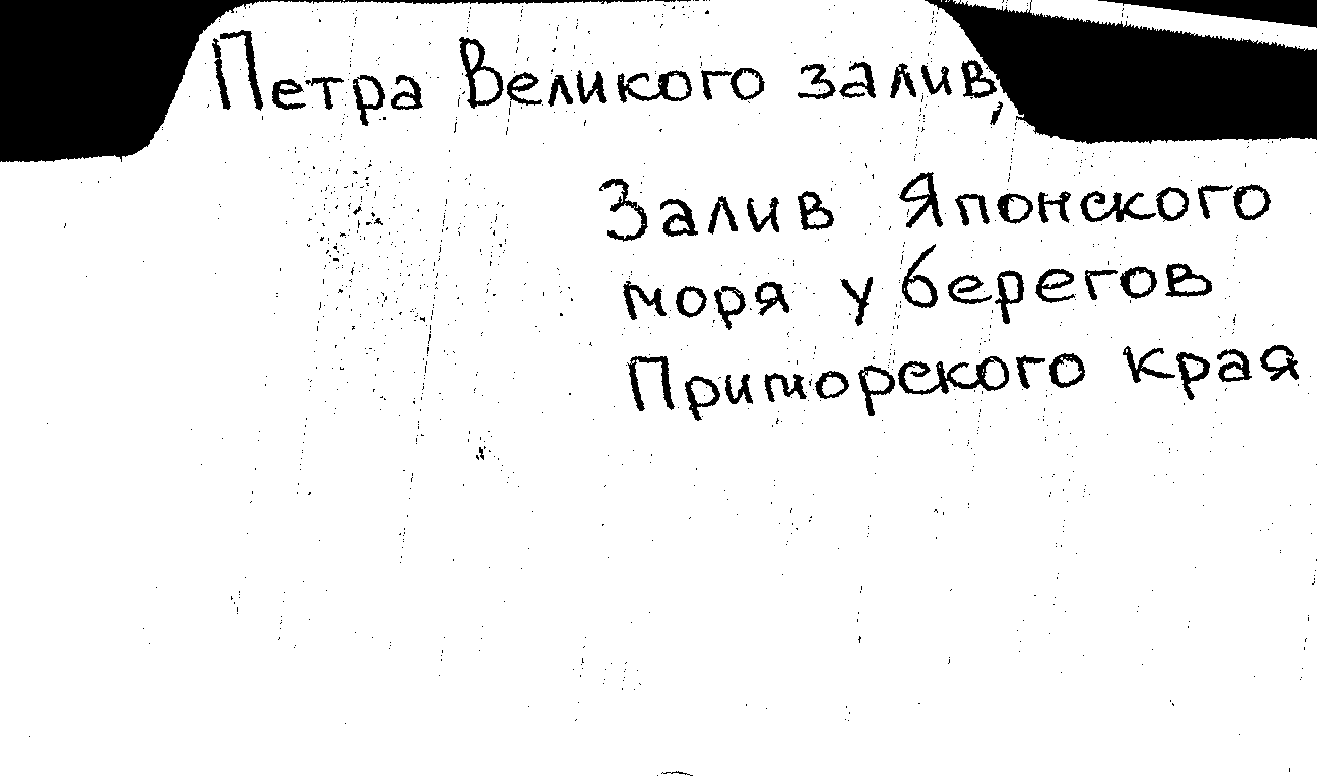 Петра Великого залив,
Залив Японского
моря у берегов
Приморского края